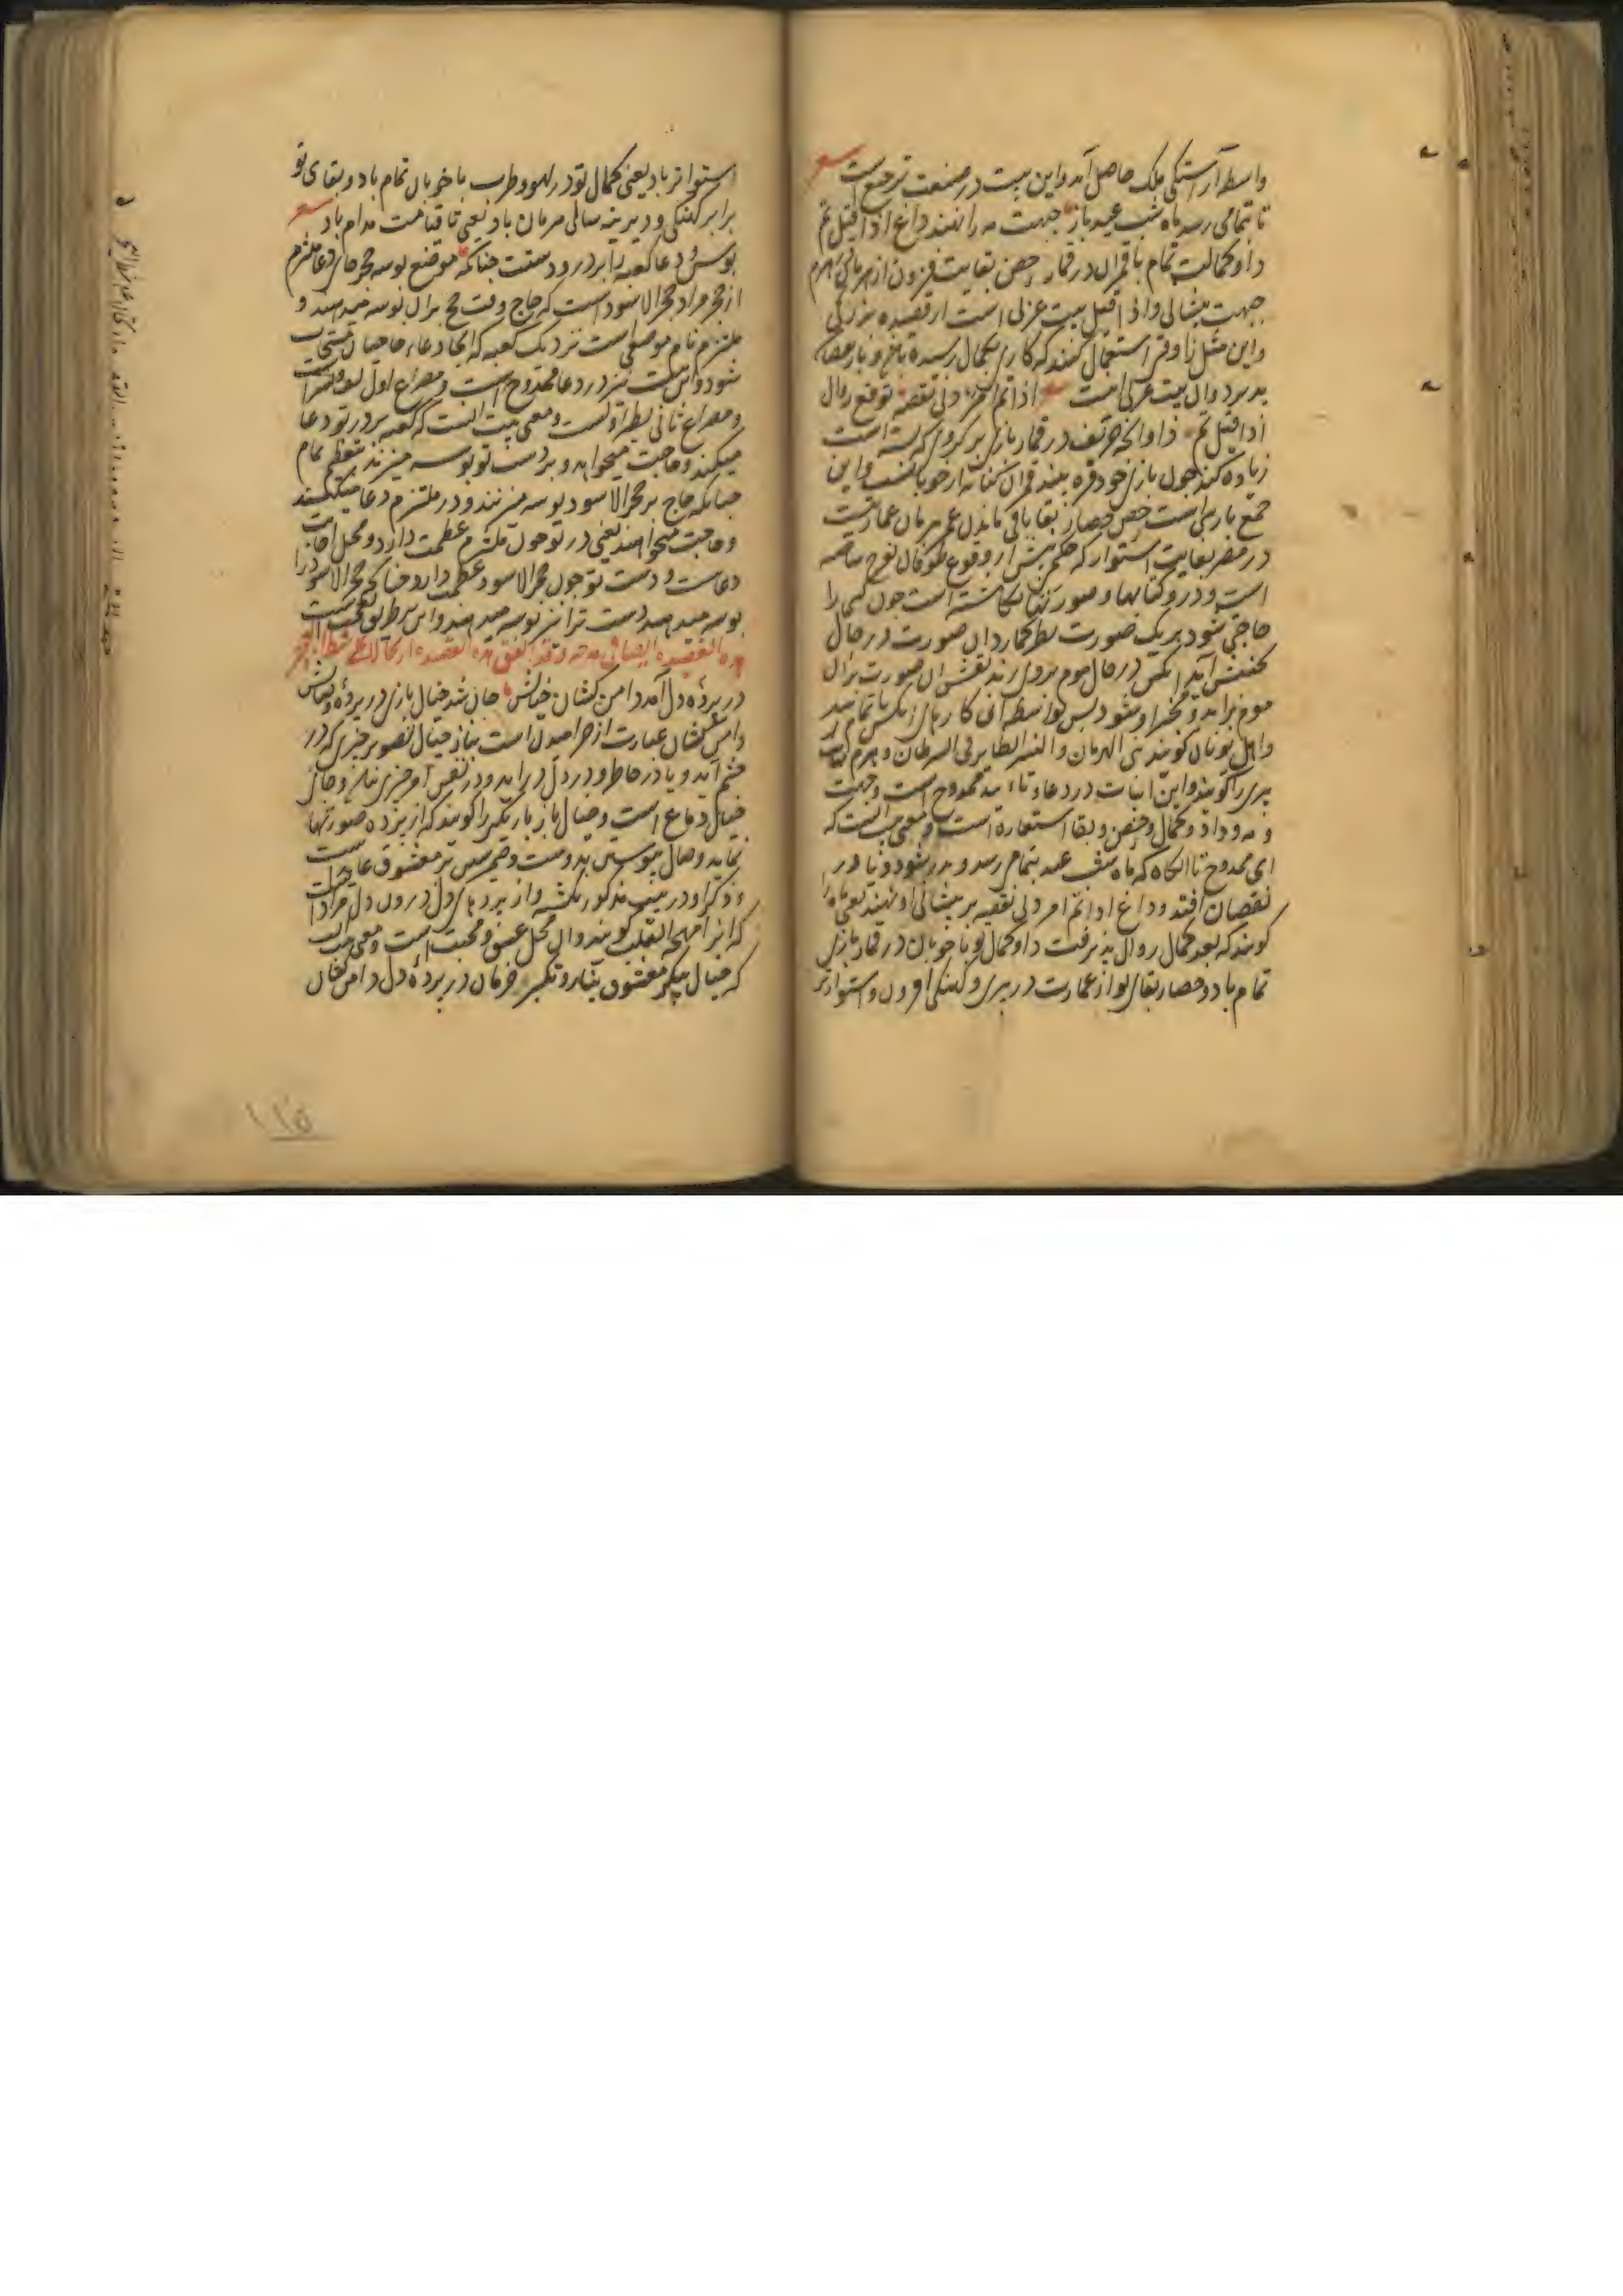 واسطه آراستکی ملک حاصل آمد و این بیت در صنعت ترجیع است
تا بتمامی رسد ماه شب عید باز جبهت مه را نهند داغ اذا قیل تم
داو کمالت تمام با قمران در قمار حصن بقایت فزون از هرمان هرم
جبهت پیشانی و اذا قیل بیت عربی است از قصیده بزرکی
و این مثل را وقتی استعمال کنند که کاری بکمال رسیده باشد و باز نقصان
پذیرد و آن بیت عربی است اذا تم امر دنی نقصه توقع زوال
اذا قیل تم داو آنچه حریف در قمار بازی بر کروی که بسته است
زیاده کند چون بازی خود فره بیند قمران کنایه از خوبانست و این
جمع پارسی است حصن حصار بقا باقی ماندن عمر هرمان عمارتیست
در مصر بغایت استوار که حکم پیش از وقوع طوفان نوح ساخته
است و در و کتابها و صورتها نکاشته است چون کسی را
حاجتی شود بر یک صورت نظر کمارد آن صورت در حال
بجنبش آید آنکس در حال موم بر وی زند نقش آن صورت بران
موم برآید و مسخر او شود پس بواسطه آن کارهای آنکس تمام شود
و اهل یونان کویند بنی الهرمان و النسر الطایر فی السرطان و هرم
پیری را کویند و این ابیات در دعاء تابید ممدوح است و جبهت
و مه و داو و کمال و حصن و بقا استعاره است و معنی آنست که
ای ممدوح تا آنکاه که ماه شب عید بتمام رسد و بدر شود و باز در
نقصان افتد و داغ اذا تم امر دنی نقصه بر پیشانی او نهند یعنی ماه را
کویند که بعد کمال زوال پذیرفت داو کمال تو با خوبان در قمار بازی
تمام باد و حصار بقای تو از عمارت در پیری و کهنکی افزون و استوارتر
استوارتر باد یعنی کمال تو در لهو و طرب با خوبان تمام باد و بقای تو
برابر کهنکی و دیرینه سالی هرمان باد یعنی تا قیامت مدام باد
بوس و دعا کعبه را بر در و دستت چنانکه موضع بوسه حجر جای دعا ملتزم
از حجر مراد حجر الاسود است که حاج وقت حج بران بوسه میدهند و
ملتزم نام موضعی است نزدیک کعبه که آنجا دعاء حاجیان مستجاب
شود و این بیت نیز در دعا ممدوح است و مصراع اول لف و نشر است
و مصراع ثانی بطراوتست و معنی بیت آنست که کعبه بر در تو دعا
میکند و حاجت میخواهد و بر دست تو بوسه میزند بتعظیم تمام
چنانکه حاج بر حجر الاسود بوسه میزنند و در ملتزم دعا میکنند
و حاجت میخواهند یعنی در تو چون ملتزم عظمت دارد و محل اجابت
دعاست و دست تو چون حجر الاسود عظمت دارد چنانکه حجر الاسود را
بوسه میدهند دست ترا نیز بوسه میدهند و این بر طریق تعجب است
هذه القصیده ایضا فی مدحه
در پرده دل آمد دامن کشان خیالش جان شد خیال بازی در پرده وصالش
دامن کشان عبارت از خرامیدن است بناز خیال تصویر چیزی که در
چشم آید و یا در خاطر و در دل درآید و در نفس امر چیزی نباشد و جای
خیال دماغ است و خیال باز بازیکر را کویند که از پرده صورتها
نماید و وصال پیوستن بدوست و ضمیر شین بر معشوق عایدست
و ذکر او در بیت مذکور نکشته و از پرده‌ای دل درون دل مراد است
که آنرا مهجة القلب کویند و آن محل عشق و محبت است و معنی آنست
که خیال پیکر معشوق بناز و تکبر خرامان در پرده دل دامن کشان
۱۱۵